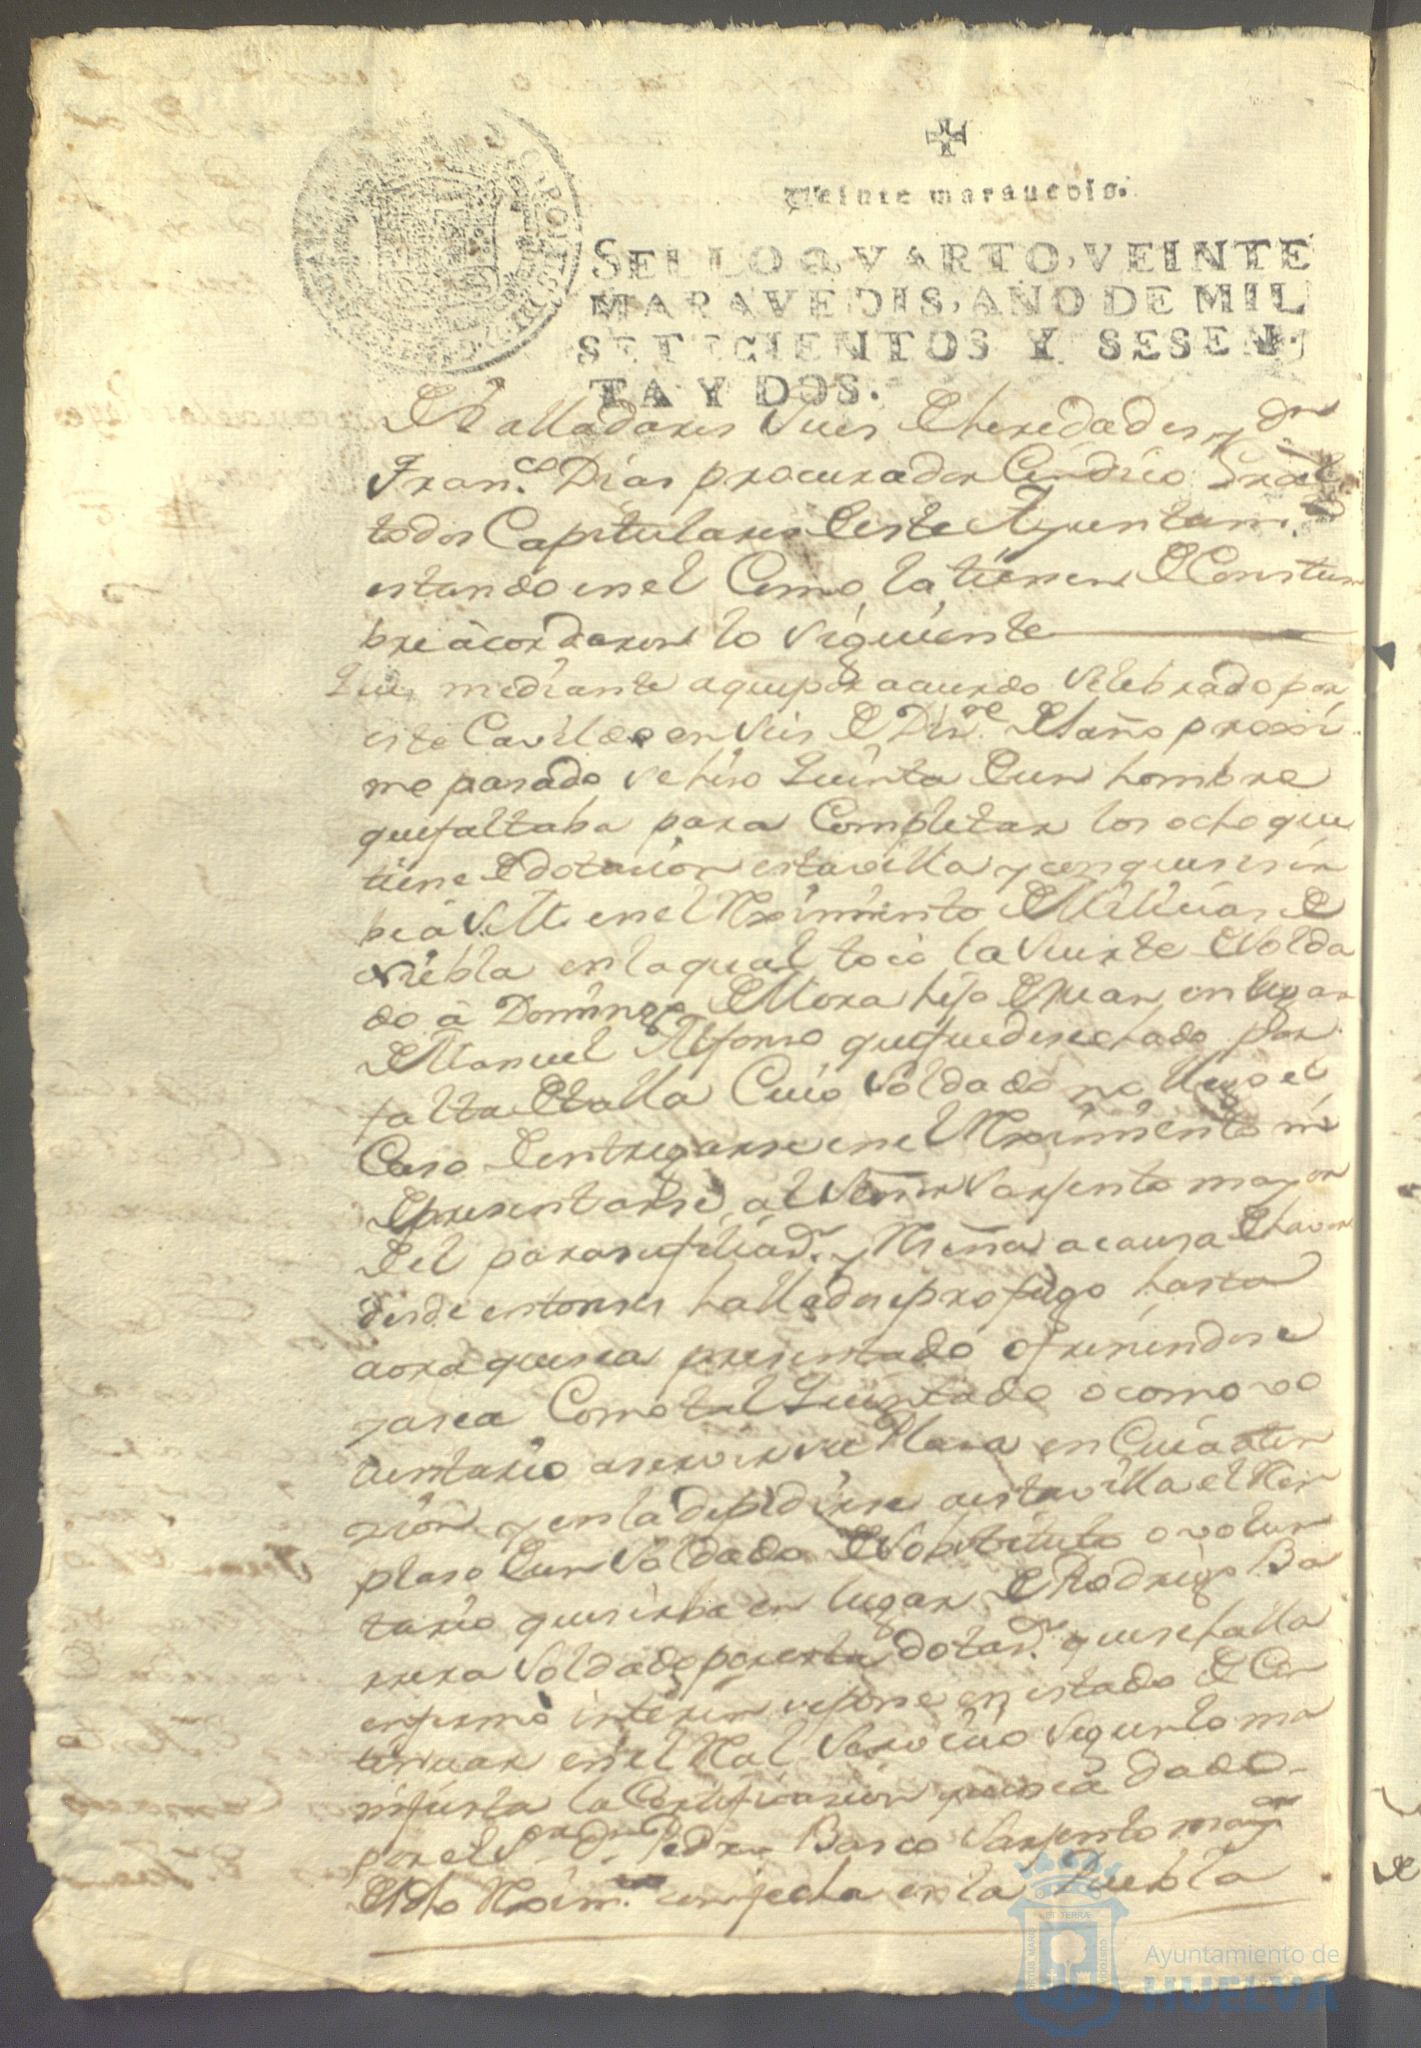 Veinte maravedis.
SELLO QVARTO, VEINTE
MARAVEDIS, AÑO DE MIL
SETECIENTOS Y SESEN-
TA Y DOS.
Valladares Jues de heredades, y Dn
Franco. Dias procurador Cindico Gral
todos Capitulares de este Ayuntamto.
estando en el Como lo tienen de Constum
bre acordaron lo siguiente
Que mediante aque por acuerdo Selebrado por
este Cavildo en Seis de Disre. del año proxi
mo pasado se hiso Quinta de un hombre
que faltaba para Completar los ocho que
tiene de dotacion esta villa y con que sir
be a S.M. en el Reximiento de Milicias de
Niebla en la qual toco la Suerte de Solda
do à Domingo de Mora hijo de Juan en lugar
de Manuel Alfonso que fue desechado por
falta de talla Cuio Soldado no llego el
Caso de entregarse en el Reximiento ni
de presentarse al Señor Sarjento mayor
de el para su filiaon. y Reseña a causa de haver
desde entonses hallado se profugo hasta
aora que se a presentado ofreciendose
ya sea Como tal Quintado o como vo
luntario a servir su Plasa en Cuia aten
zion y en la de pedirse a esta villa el Rem
plaso de un Soldado de Sobstituto o volun
tario que sirba en lugar de Rodrigo Ba
rrera Soldado por esta dotaon. que se halla
enfermo interin se pone en estado de Con
tinuar en el Ral Servicio Segun lo ma
nifiesta la Certificacion que se a dado
por el Sor. Dn. Pedro Basco Sarjento mayor
de dho Reximto. con fecha en la Puebla
Ayuntamiento de
HUELVA